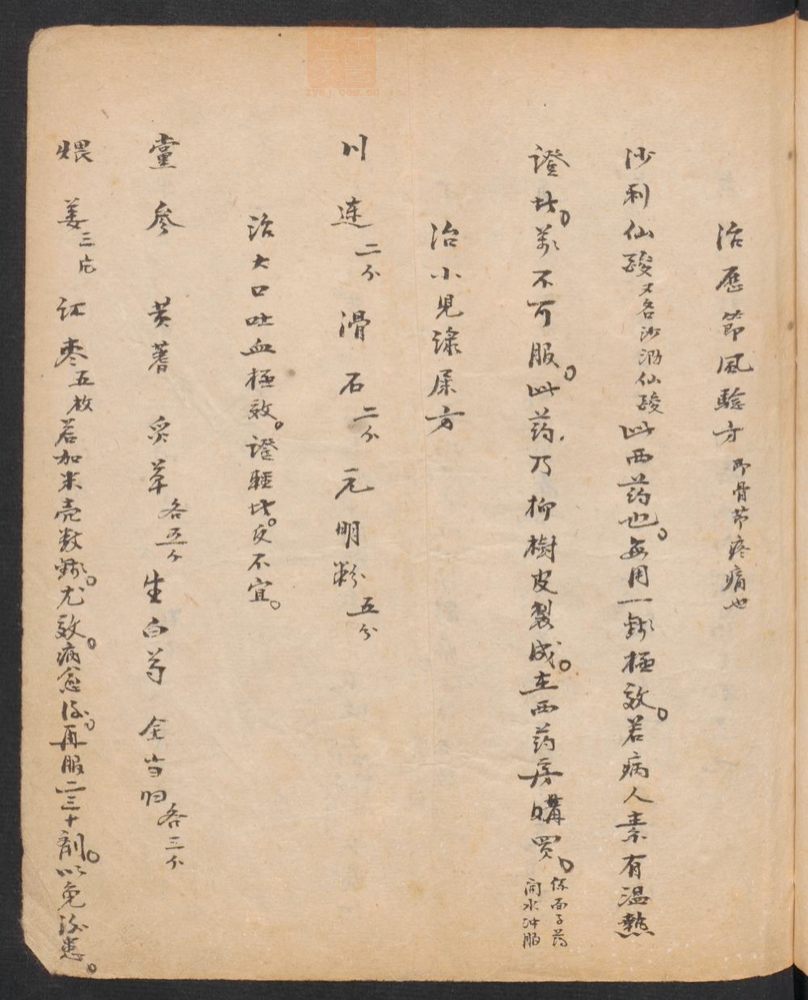 治歷節風驗方 即骨节疼痛也
沙利仙酸 又名沙溺仙酸 此西药也。每用一錢極效。若病人素有温熱
證者。萬不可服。此药乃柳樹皮製成。在西药房購買。 係面子药 開水冲服
治小兒綠尿方
川連二分 滑石二分 元明粉五分
治大口吐血極效。證輕者。反不宜。
黨參 黄蓍 炙草各五分 生白芍 全当归各三分
煨姜三片 红枣五枚 若加米壳数錢。尤效。病愈後。再服二三十劑。以免後患。